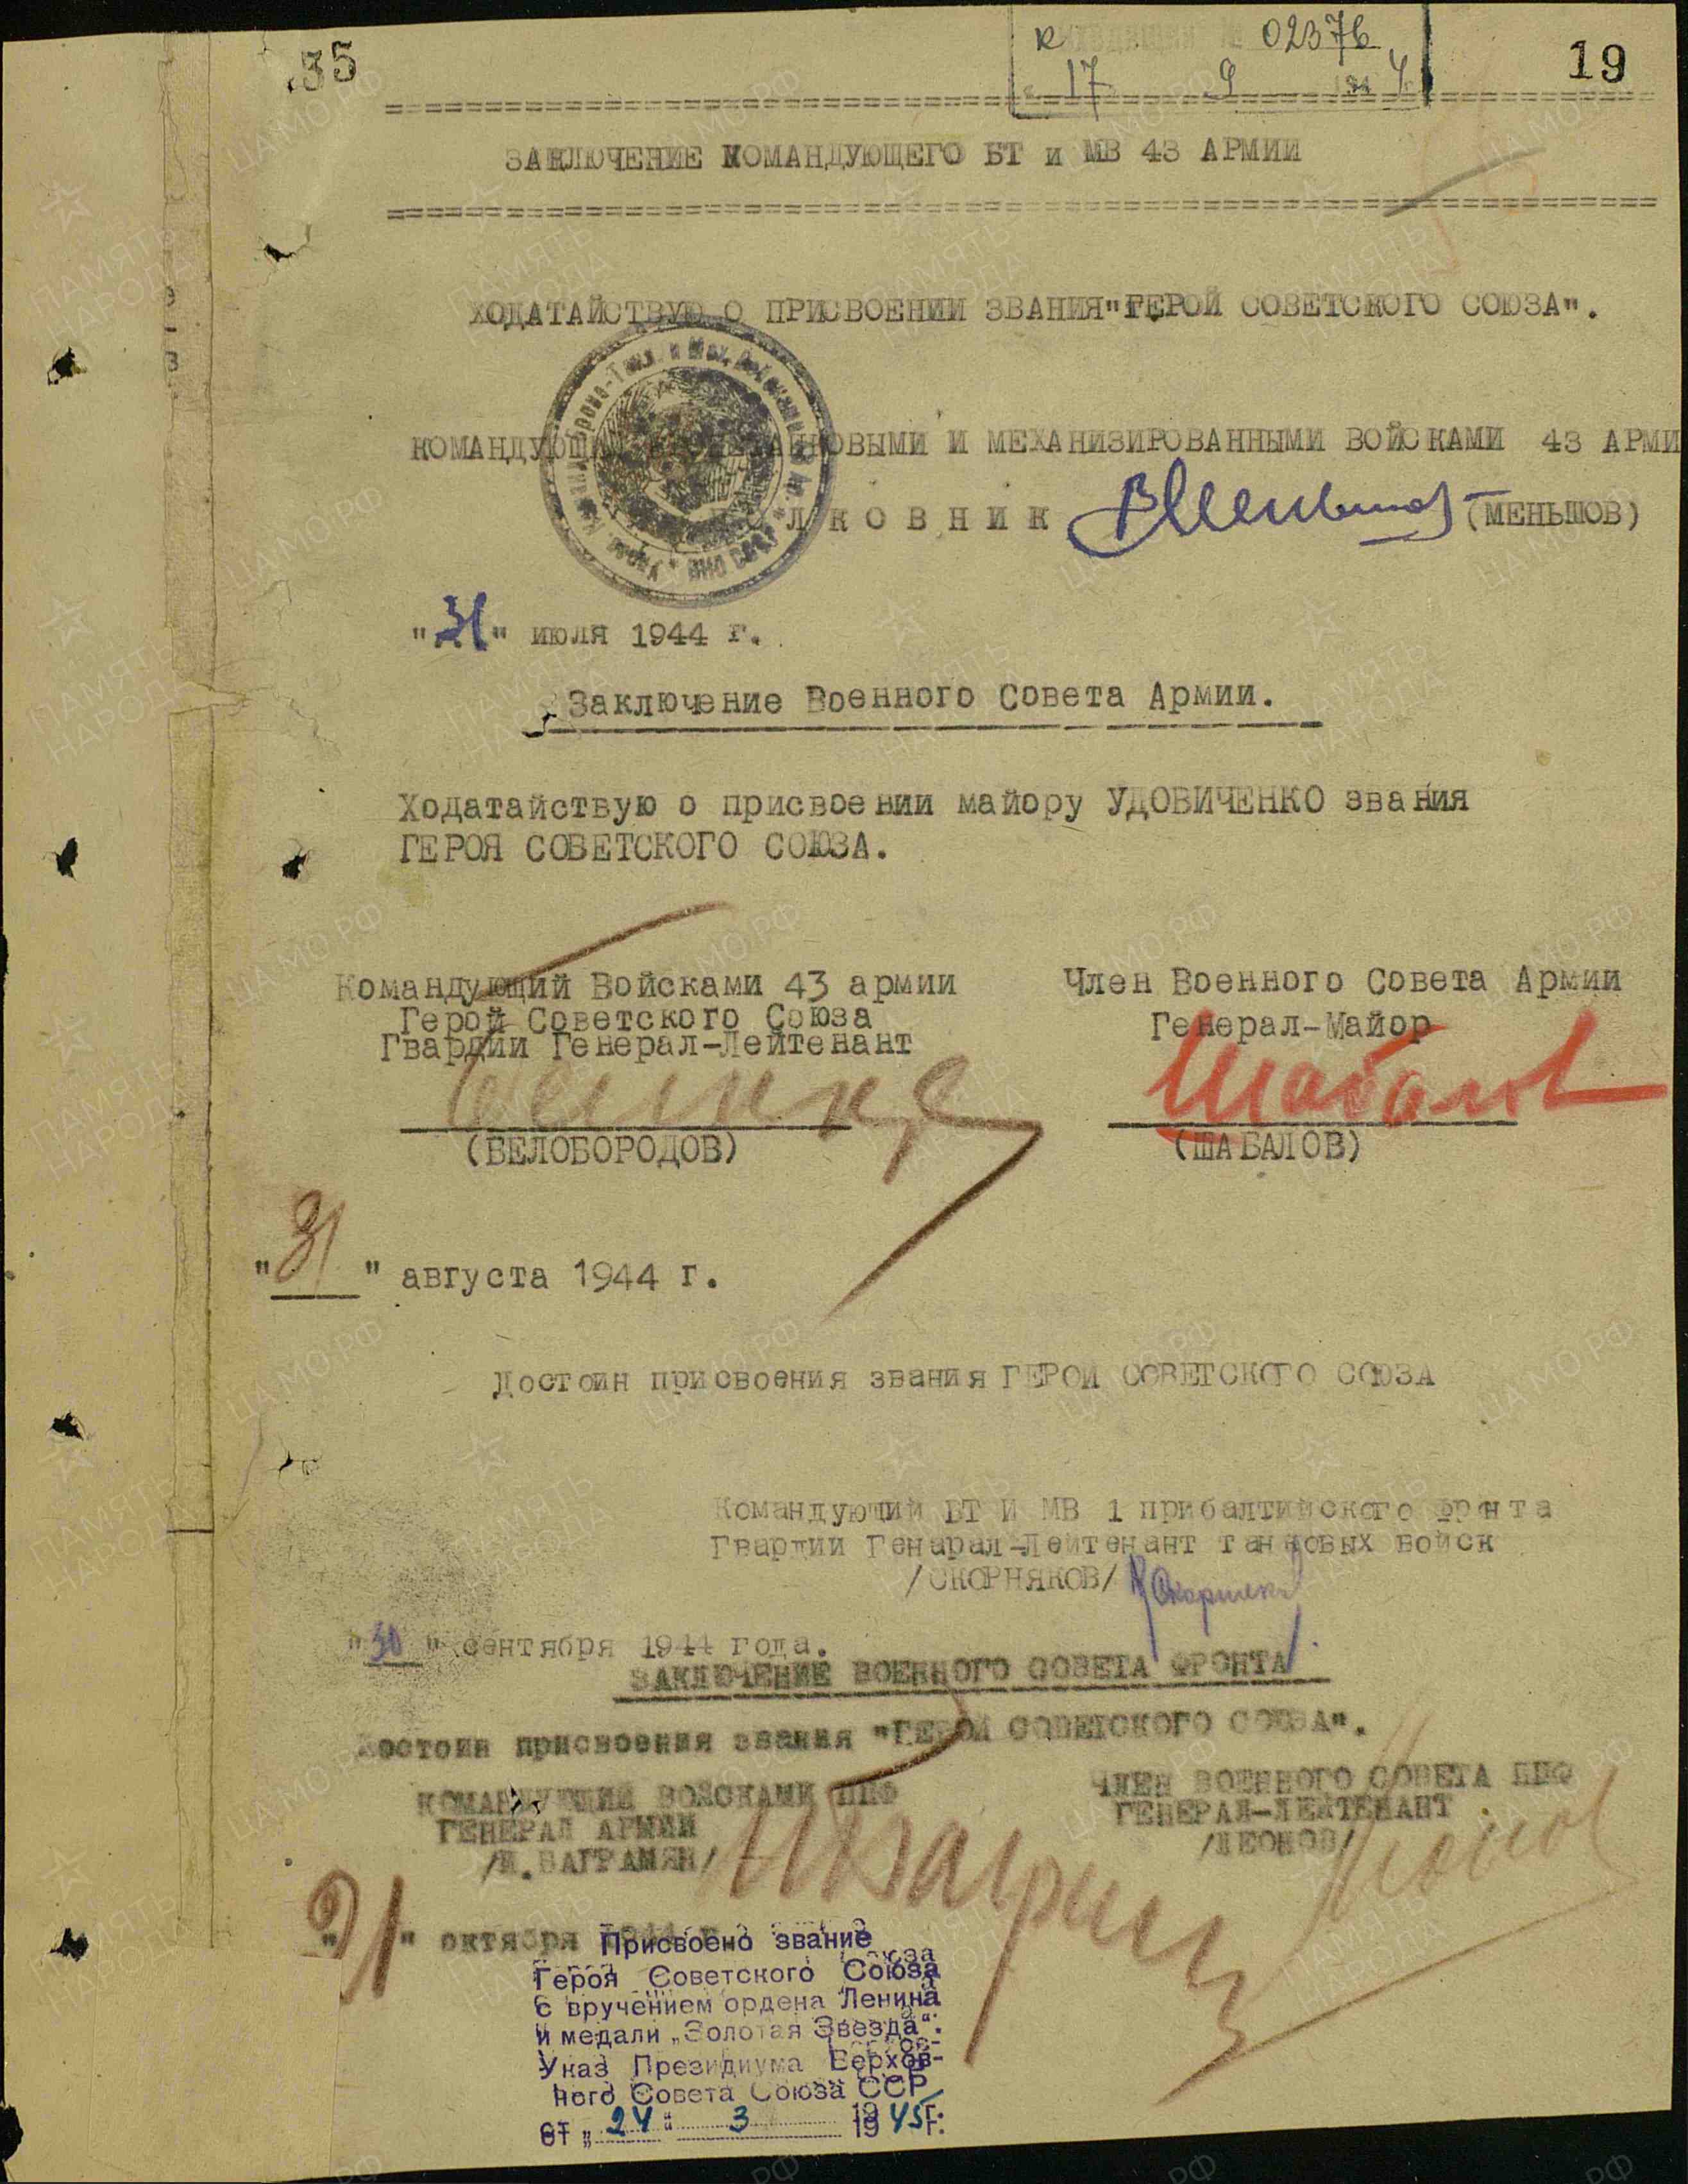 35
02376
19
17 9 1944
ЗАКЛЮЧЕНИЕ КОМАНДУЮЩЕГО БТ и МВ 43 АРМИИ
ХОДАТАЙСТВУЮ О ПРИСВОЕНИИ ЗВАНИЯ "ГЕРОЙ СОВЕТСКОГО СОЮЗА".
КОМАНДУЮЩИЙ БРОНЕТАНКОВЫМИ И МЕХАНИЗИРОВАННЫМИ ВОЙСКАМИ 43 АРМИ
ПОЛКОВНИК (МЕНЬШОВ)
"31" июля 1944 г.
Заключение Военного Совета Армии.
Ходатайствую о присвоении майору УДОВИЧЕНКО звания
ГЕРОЯ СОВЕТСКОГО СОЮЗА.
Командующий Войсками 43 армии
Герой Советского Союза
Гвардии Генерал-Лейтенант
(БЕЛОБОРОДОВ)
Член Военного Совета Армии
Генерал-Майор
Шабалов
(ШАБАЛОВ)
"31" августа 1944 г.
Достоин присвоения звания ГЕРОЙ СОВЕТСКОГО СОЮЗА
Командующий БТ И МВ 1 прибалтийского фронта
Гвардии Генарал-Лейтенант танковых войск
/СКОРНЯКОВ/
"30" сентября 1944 года.
ЗАКЛЮЧЕНИЕ ВОЕННОГО СОВЕТА ФРОНТА
Достоин присвоения звания "ГЕРОЙ СОВЕТСКОГО СОЮЗА".
КОМАНДУЮЩИЙ ВОЙСКАМИ ППФ
ГЕНЕРАЛ АРМИИ
/И.БАГРАМЯН/
ЧЛЕН ВОЕННОГО СОВЕТА ППФ
ГЕНЕРАЛ-ЛЕЙТЕНАНТ
/ЛЕОНОВ/
"21" октября 1944 г.
Присвоено звание
Героя Советского Союза
с вручением ордена Ленина
и медали „Золотая Звезда".
Указ Президиума Верхов-
ного Совета Союза ССР
от „24" 3 1945г.